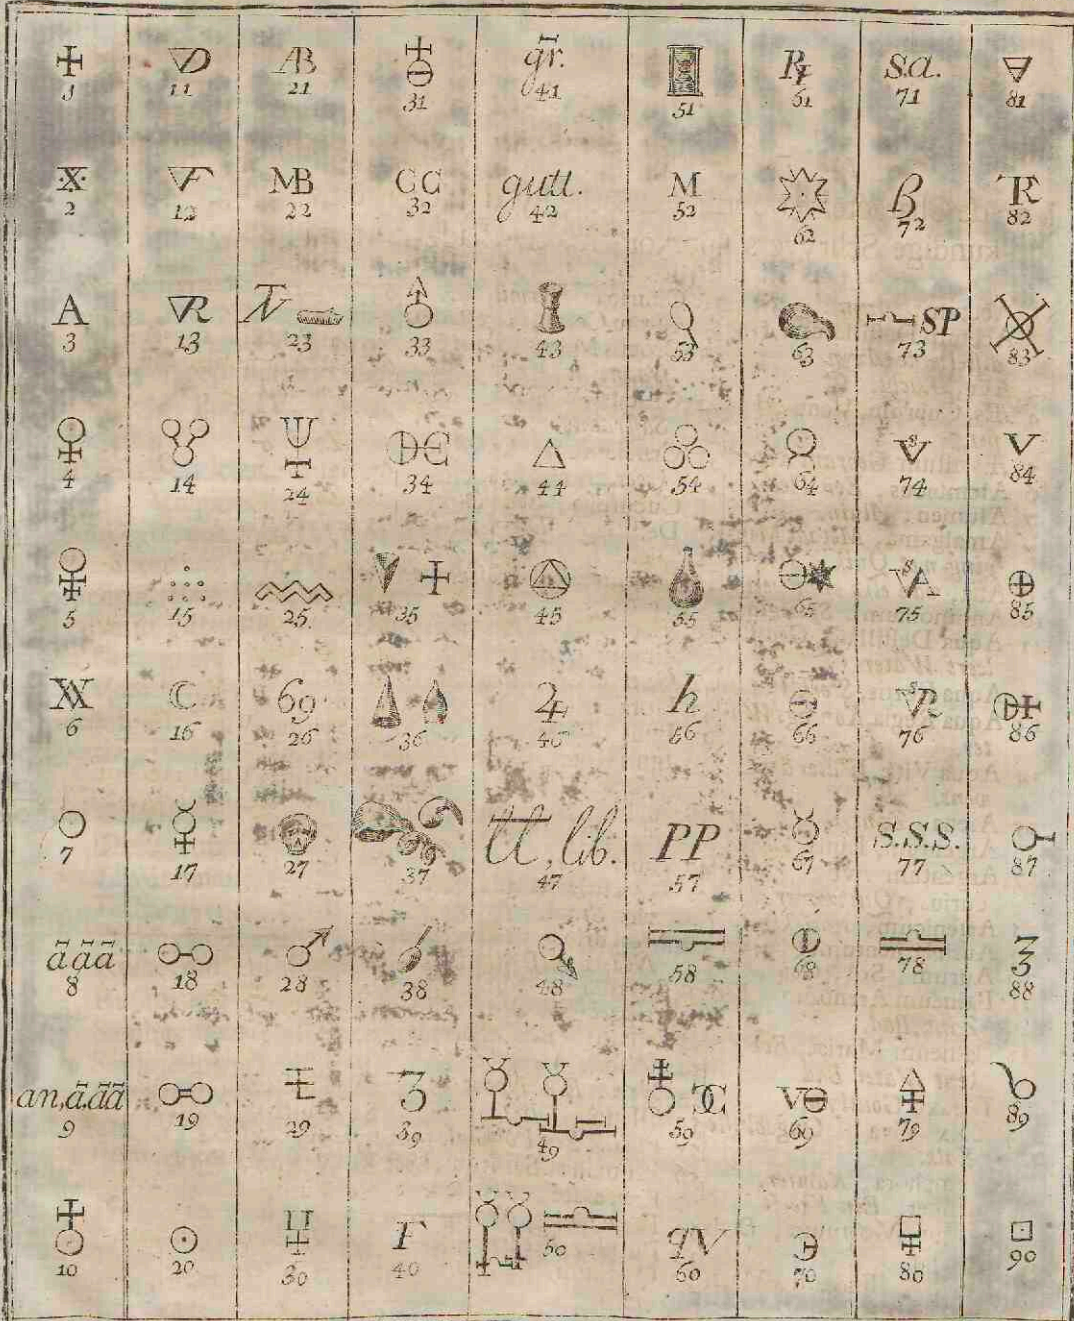 1 11 21 31 gr. 41 51 ℞ 61 S.a. 71 81
AB
2 12 MB 22 CC 32 gutt. 42 M 52 62 ß 72 82
A 3 13 23 33 43 53 63 SP 73 83
4 14 24 34 44 54 64 74 V 84
5 15 25 35 45 55 65 75 85
6 16 69 26 36 46 h 56 66 76 86
7 17 27 37 lib. 47 PP 57 67 S.S.S. 77 87
ããã 8 18 28 38 48 58 68 78 88
an, ããã 9 19 29 39 49 59 69 79 89
10 20 30 F 40 50 qV 60 70 80 90